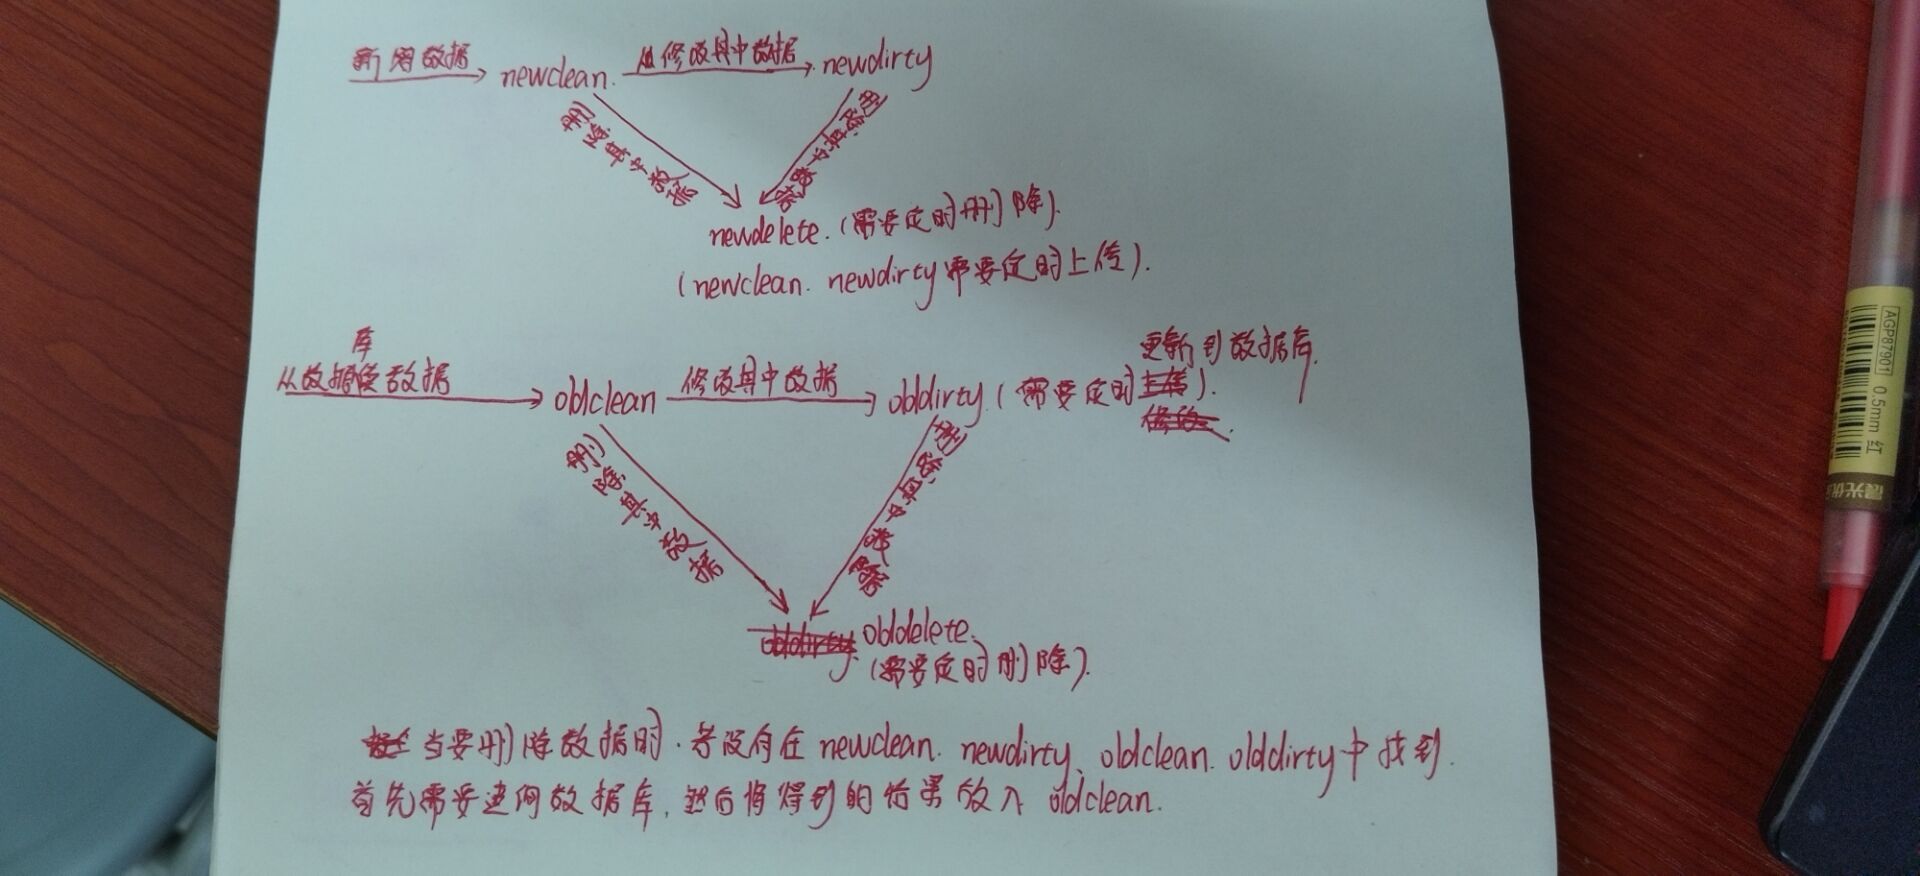 新的数据 newclean. 从修改其中数据 newdirty
删除其中数据 删除其中数据
newdelete. (需要定时删除).
(newclean. newdirty需要定时上传).
库
从数据读数据 oldclean 修改其中数据 olddirty. (需要定时上传).
更新到数据库.
修改
删除其中数据 删除其中数据
olddirty. olddelete.
(需要定时删除).
当要删除数据时. 若没有在 newclean. newdirty、oldclean. olddirty中找到.
首先需要查询数据库, 然后将得到的结果放入 oldclean.
AGP87901 0.5mm 红
晨光优